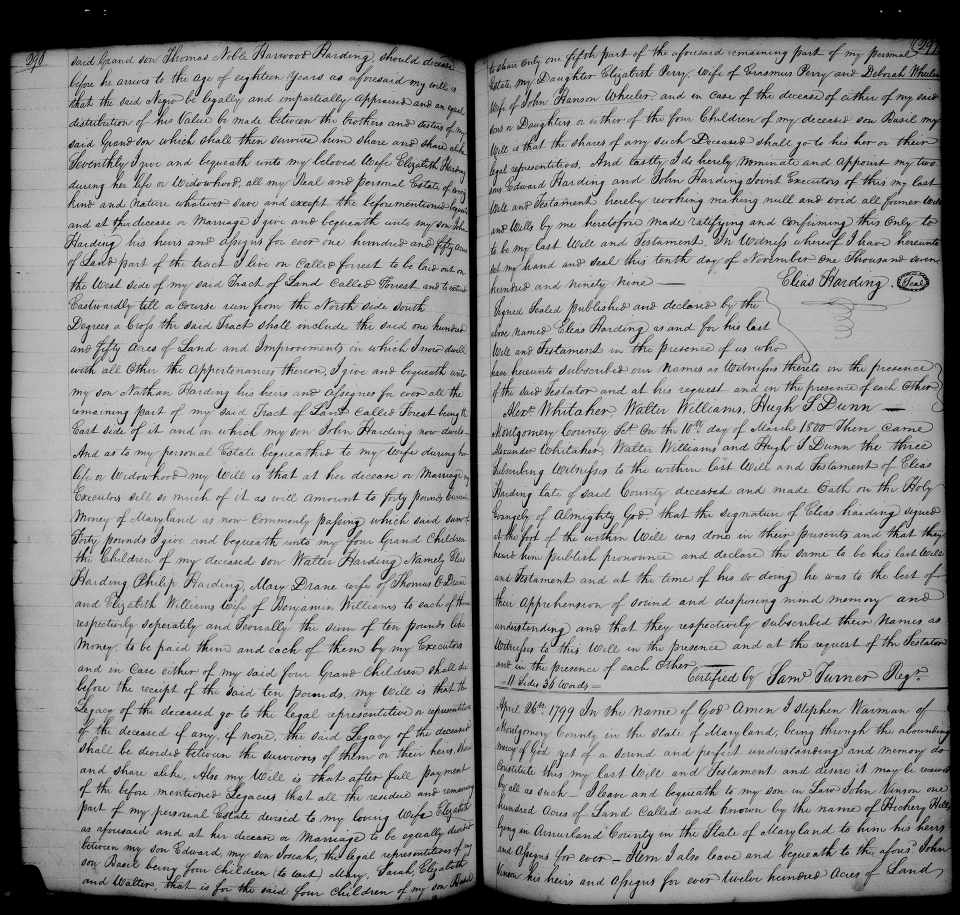 290
said Grand son Thomas Noble Harwood Harding, should decease
before he arives to the age of eighteen years as aforesaid my will is
that the said Negro be legally and impartially Appraised and an equal
distribution of his Value be made between the brothers and sisters of my
said Grand son which shall then survive him share and share alike
Seventhly I give and bequeath unto my beloved Wife Elizabeth Harding
during her life or Widowhood, all my Real and personal Estate of every
kind and Nature whatever save and except the beforementioned bequests
and at the decease or Marriage I give and bequeath unto my son John
Harding his heirs and assigns for ever one hundred and fifty acres
of Land part of the tract I live on Called forrest to be laid out on
the West side of my said Tract of Land Called Forrest and to extend
Eastwardly till a course run from the North side South
Degrees a Cross the said Tract shall include the said one hundred
and fifty acres of Land and Improvements in which I now dwell
with all Other the Appertenances thereon, I give and bequeath unto
my son Nathan Harding his heirs and assignes for ever all the
remaining part of my said Tract of Land Called Forest being the
East side of it and on which my son John Harding now dwells
And as to my personal Estate bequeathed to my Wife during her
life or Widowhood my Will is that at her decease or Marriage my
Executors sell so much of it as will amount to forty pounds Current
Money of Maryland as now Commonly passing which said sum of
Forty pounds I give and bequeath unto my four Grand Children
the Children of my deceased son Walter Harding Namely Elias
Harding Philip Harding, Mary Drane wife of Thomas Drane
and Elizabeth Williams Wife of Benjamin Williams to each of them
respectively seperately and severally the sum of ten pounds like
Money, to be paid them and each of them by my Executors
and in Case either of my said four Grand Children shall die
before the receipt of the said ten pounds, my Will is that the
Legacy of the deceased go to the legal representative or representatives
of the deceased if any, if none, the said Legacy of the deceased
shall be devided between the survivors of them or their heirs, Share
and share alike, Also my Will is that after full payment
of the before mentioned Legacies that all the residue and remaining
part of my personal Estate devised to my loving Wife Elizabeth
as aforesaid and at her decease or Marriage to be equally divided
between my son Edward, my son Josiah, the legal representatives of my
son Basil being four Children (to wit) Mary, Sarah, Elizabeth
and Walter, that is for the said four Children of my son Basil
291
to share only one fifth part of the aforesaid remaining part of my personal
Estate, my Daughter Elizabeth Perry, Wife of Erasmus Perry and Deborah Wheeler
Wife of John Hanson Wheeler, and in case of the decease of either of my said
sons or Daughters or either of the four Children of my deceased son Basil my
Will is that the shares of any such Deceased shall go to his her or their
legal representatives, And lastly I do hereby Nominate and Appoint my two
sons Edward Harding and John Harding Joint Executors of this my last
Will and Testament hereby revoking making null and void all former Wills
and Wills by me heretofore made ratifying and confirming this Only to
to be my last Will and Testament. In Witness whereof I have hereunto
set my hand and seal this tenth day of November One Thousand seven
hundred and ninety nine —
Elias Harding. Seal
Signed Sealed published and declared by the
above named Elias Harding as and for his last
Will and Testament in the presence of us who
have hereunto subscribed our Names as Witnesses thereto in the presence
of the said Testator and at his request and in the presence of each Other
Alexr. Whitaker, Walter Williams, Hugh S Dunn —
Montgomery County Sct. On the 10th day of March 1800 Then came
Alexander Whitaker, Walter Williams and Hugh S Dunn the three
Subscribing Witnesses to the within last Will and Testament of Elias
Harding late of said County deceased and made Oath on the Holy
Evangely of Almighty God, that the signature of Elias harding signed
at the foot of the within Will was done in their presents and that they
heard him publish pronounce and declare the same to be his last Will
and Testament and at the time of his so doing he was to the best of
their Apprehension of sound and disposing mind memory and
understanding and that they respectively subscribed their Names as
Witnesses to this Will in the presence and at the request of the Testator
and in the presence of each Other
11 Sides 34 Words
Certified by Saml Turner Regr.
April 26th 1799 In the name of God Amen I Stephen Warman of
Montgomery County in the state of Maryland, being through the abounding
mercy of God yet of a sound and perfect understanding and memory do
Constitute this my last Will and Testament and desire it may be received
by all as such — I leave and bequeath to my son in Law John Vinson one
hundred Acres of Land Called and known by the name of Hickery Hills
lying in County in the State of Maryland to him his heirs
and Assigns for ever — Item I also leave and bequeath to the afores'd John
Vinson his heirs and Assigns for ever twelve hundred Acres of Land